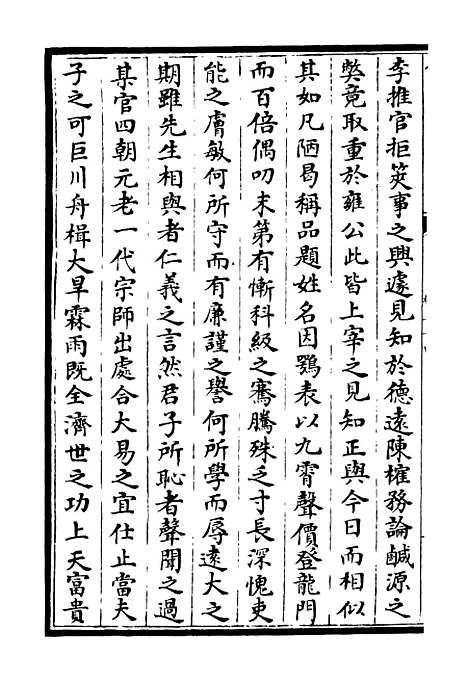 李推官拒筴事之興遽見知於德遠陳㩁務論鹹源之
弊竟取重於雍公此皆上宰之見知正與今日而相似
其如凡陋曷稱品題姓名因鶚表以九霄聲價登龍門
而百倍偶叨末第有慚科級之騫騰殊乏寸長深愧吏
能之膚敏何所守而有廉謹之譽何所學而辱遠大之
期雖先生相與者仁義之言然君子所恥者聲聞之過
某官四朝元老一代宗師出處合大易之宜仕止當夫
子之可巨川舟楫大旱霖雨既全濟世之功上天富貴